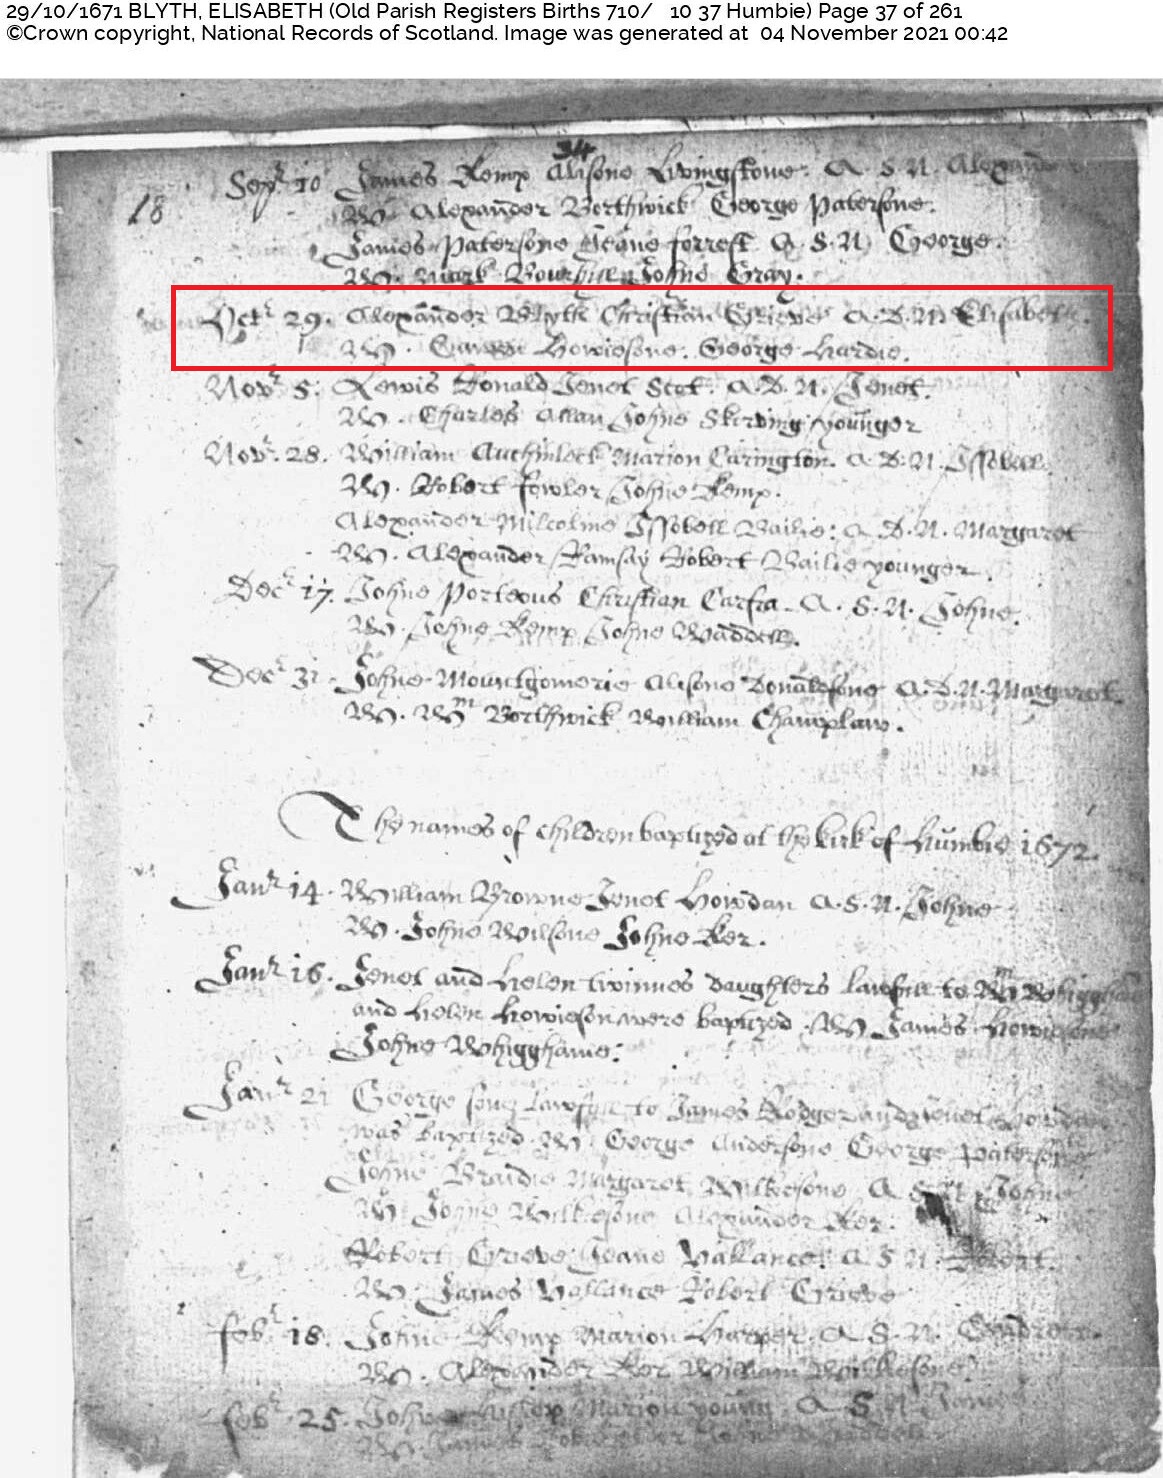 29/10/1671 BLYTH, ELISABETH (Old Parish Registers Births 710/ 10 37 Humbie) Page 37 of 261
©Crown copyright, National Records of Scotland. Image was generated at 04 November 2021 00:42
34
Sepr 10 James Kemp Alisone Livingstone. A. S. N. Alexander
18
W. Alexander Borthwick George Patersone.
James Patersone Jeane forrest A. S. N. George.
W. Mark Johne Gray.
Octr 29. Alexander Blyth Christian Grieve A. D. N. Elisabeth.
W. Howiesone. George Hardie.
Novr 5. Lewis Ronald Jenet Scot. A. D. N. Jenet.
W. Charles Allan Johne Skirving younger
Novr. 28. William Auchinleck Marion Carington. A. D. N. Issobell.
W. Robert fowler Johne Kemp.
Alexander Milcolme Issobell Bailie: A. D. N. Margaret
W. Alexander Ramsay Robert Bailie younger.
Decr 17. Johne Porteous Christian Carfra. A. S. N. Johne.
W. Johne Kemp Johne Waddell.
Decr 31. Johne Mountgomerie Alisone Donaldsone A. D. N. Margaret.
W. Wm Borthwick William Champlaw.
The names of children baptized at the kirk of Humbie 1672.
Janr 14. William Browne Jenet Howdan A. S. N. Johne
W. Johne Wilsone Johne Ker.
Janr 16. Jenet and Helen twinnes daughters lawfull to Wm
and Helen Howieson were baptized. W. James Howiesone
Johne Whigghame.
Janr 21 George sone lawfull to James Rodger and Jenet
was baptized. W. George Andersone George Patersone
Johne Braidie Margaret Wilkiesone A. S. N. Johne
W. Johne Wilkiesone Alexander Ker.
Robert Grieve Jeane Vallance. A. S. N. Robert.
W. James Vallance Robert Grieve
febr. 18. Johne Kemp Marion Harper. A. S. N.
W. Alexander Ker William Wilkiesone.
febr. 25. John Marion young. A. S. N. James
W. James